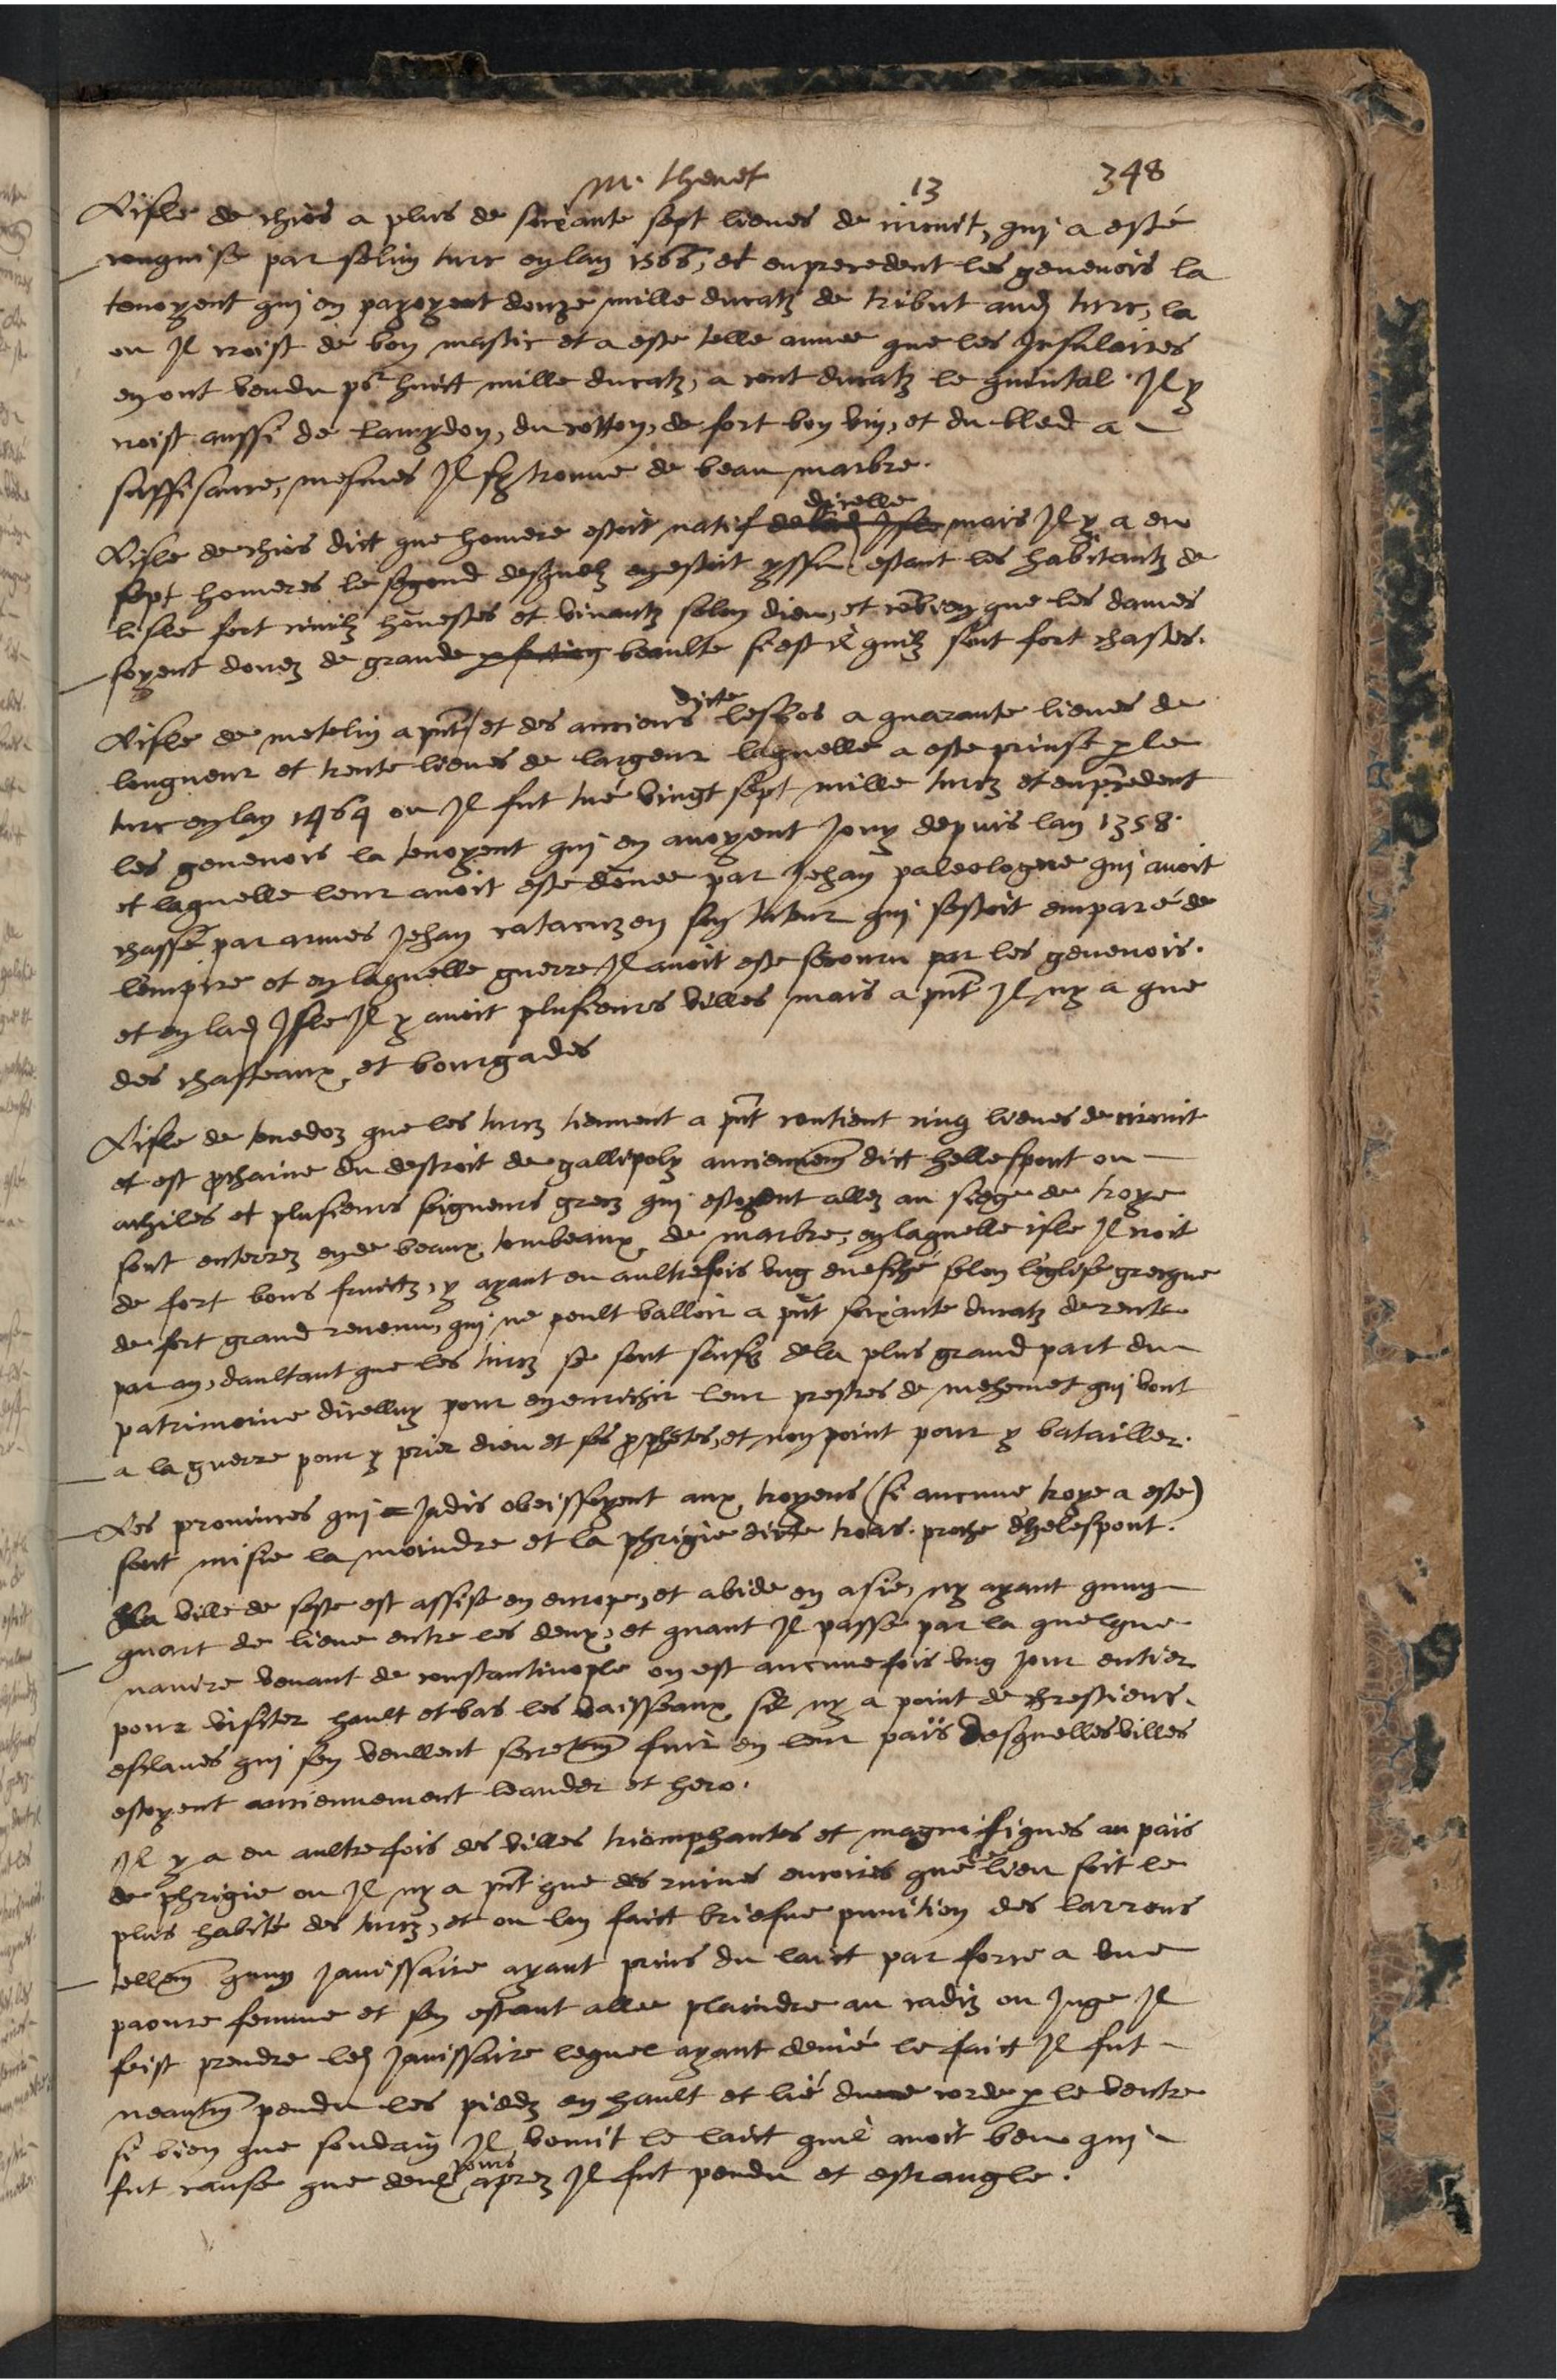 m. thevet 13 348
Lisle de chios a plus de soixante sept lieues de circuit, qui a esté
conquise par selim turc en lan 1566, et en precedent les genevois la
tenoyent qui en payoyent douze mille ducatz de tribut aud turc, la
ou Il croist de bon mastic et a este telle annee que les Insulaires
en ont vendu pr huict mille ducatz, a cent ducatz le quintal. Il y
croist aussi de lamydon, du cotton, de fort bon vin, et du bled a
suffisance, mesmes Il sy trouve de beau marbre.
Lisle de chios dict que homere estoit natif dicelle mais Il y a eu
sept homeres le segond desquelz en estoit yssu estant les habitantz de
lisle fort civilz honestes et vivantz selon dieu, et cobien que les dames
soyent douez de grande beaulte si est il quilz sont fort chastes.
Lisle de metelin a pnt et des anciens dicte lesbos a quarante lieues de
longueur et trente lieues de largeur laquelle a este prinse p le
turc en lan 1464 ou Il fut tué vingt sept mille turcz et en precedent
les genevois la tenoyent qui en avoyent Jouy depuis lan 1358.
et laquelle leur avoit este donee par Jehan paleologue qui avoit
chassé par armes Jehan catacuzen son tuteur qui sestoit emparé de
lempire et en laquelle guerre Il avoit este secouru par les genevois.
et en lad Isle Il y avoit plusieurs villes mais a pnt Il ny a que
des chasteaux et bourgades
Lisle de tenedoz que les turcz tiennent a pnt contient cinq lieues de circuit
et est pchaine du destroit de gallipoly anciennem dict hellespont ou
achiles et plusieurs seigneurs grecz qui estoyent allez au siege de troye
sont enterrez en de beaux tombeaux de marbre, en laquelle isle Il croit
de fort bons fruictz, y ayant eu aultrefois ung evesché selon leglise grecque
de fort grand revenu, qui ne peult valloir a pnt soixante ducatz de rente
par an, daultant que les turcz se sont saisiz de la plus grand part du
patrimoine dicelluy pour en enrichir leur prestres de mehemet qui vont
a la guerre pour y prier dieu et ses pphetes, et non point pour y batailler.
Les provinces qui Jadis obeissoyent aux troyens (si aucune troye a este)
sont misie la moindre et la phrigie dicte troas. proche dhelespont.
La ville de seste est assise en europe, et abide en asie, ny ayant quung
quart de lieue entre les deux, et quant Il passe par la quelque
navire venant de constantinople on est aucunefois ung Jour entier
pour visiter hault et bas les vaisseaux sil ny a point de chrestiens
esclaves qui sen veullent secretem fuir en leur païs desquelles villes
estoyent anciennement leander et hero.
Il y a eu aultrefois des villes triomphantes et magnifiques au païs
de phrigie ou Il ny a pnt que des ruines encoires que le lieu soit le
plus habité des turcz, et ou lon faict briefve punition des larrons
tellem quung Janissaire ayant prins du laict par force a une
paovre femme et sen estant allee plaindre au cadiz ou Juge Il
feist prendre led Janissaire lequel ayant denié le faict Il fut
neantm pendu les piedz en hault et lié dune corde p le ventre
si bien que soudain Il vomit le laict quil avoit beu qui
fut cause que deux Jours aprez Il fut pendu et estrangle.